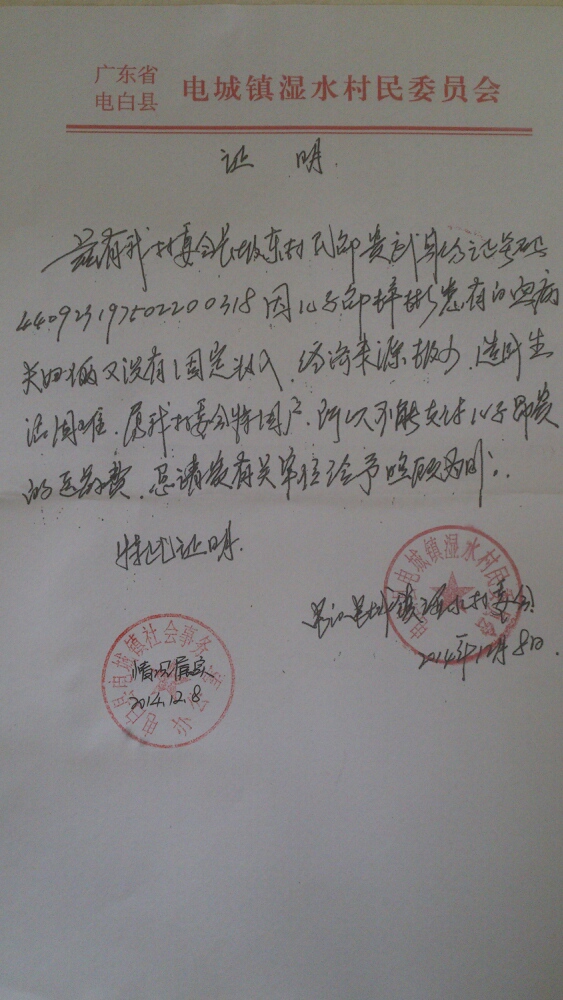 广东省
电白县
电城镇湿水村民委员会
证 明
兹有我村委会长坡东村民邵贵 身份证号码
440923197502200318因儿子邵梓彬患有白血病
夫妇俩又没有固定收入,经济来源极少,造成生
活困难,属我村委会特困户,所以不能支付儿子昂贵
的医药费,恳请贵有关单位给予照顾为盼。
特此证明.
电白县电城镇湿水村委会
2014年12月8日
电城镇湿水村民委员会
电白县电城镇社会事务办公室
情况属实
2014.12.8